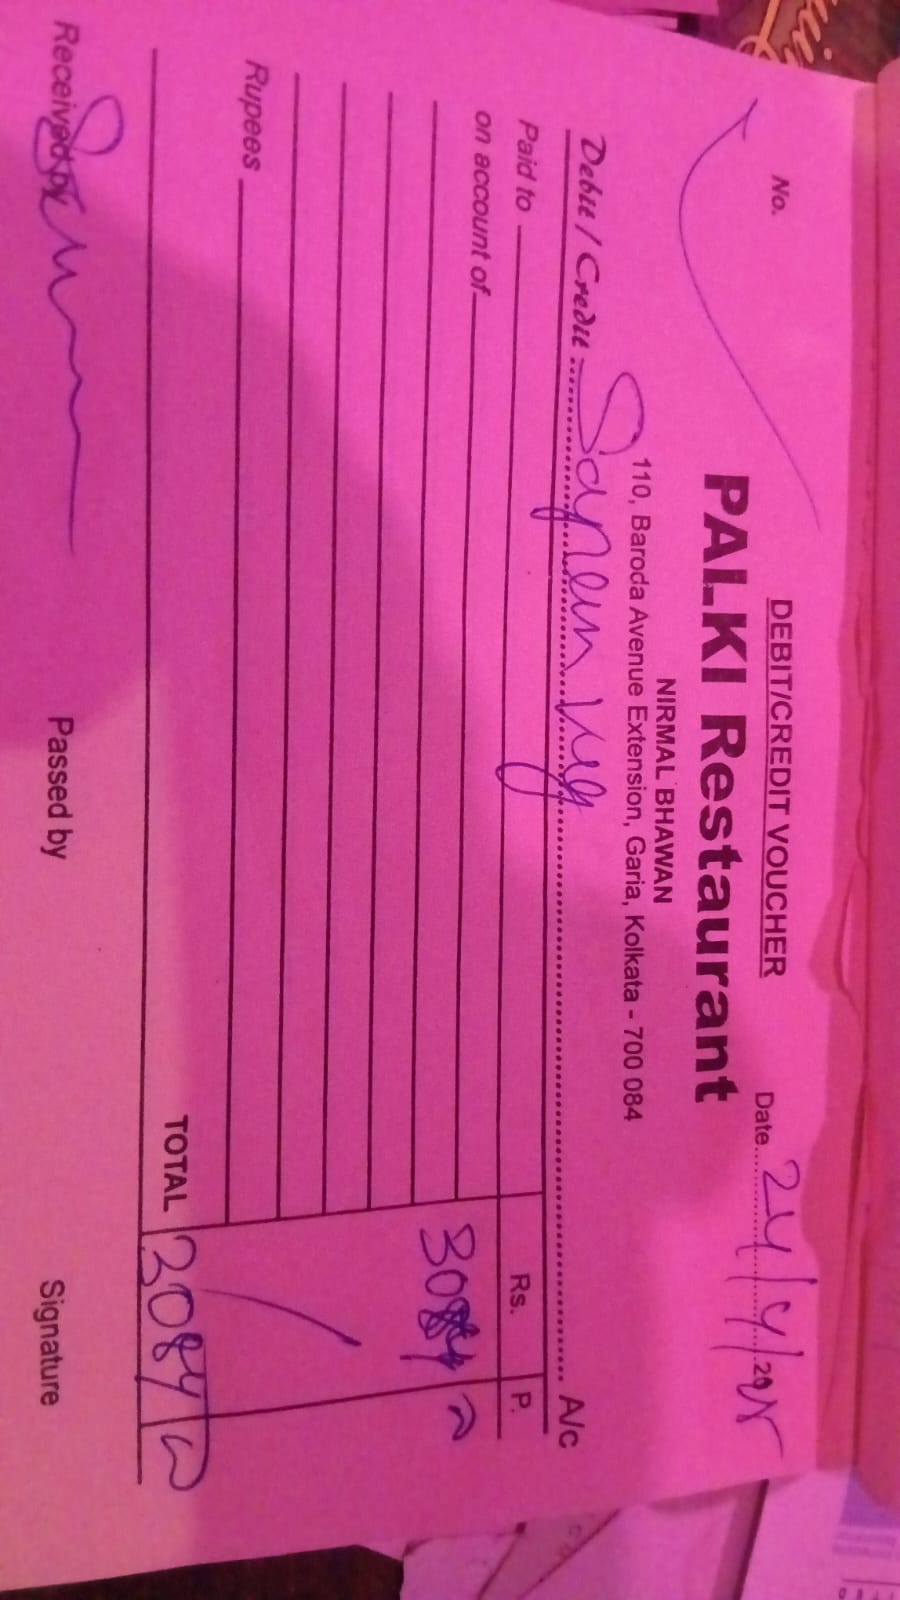 DEBIT/CREDIT VOUCHER
No.
Date 24/4/20
PALKI Restaurant
NIRMAL BHAWAN
110, Baroda Avenue Extension, Garia, Kolkata - 700 084
Debit / Credit A/c
Paid to Rs. P.
on account of
3084
Rupees
TOTAL 3084
Received by Passed by Signature